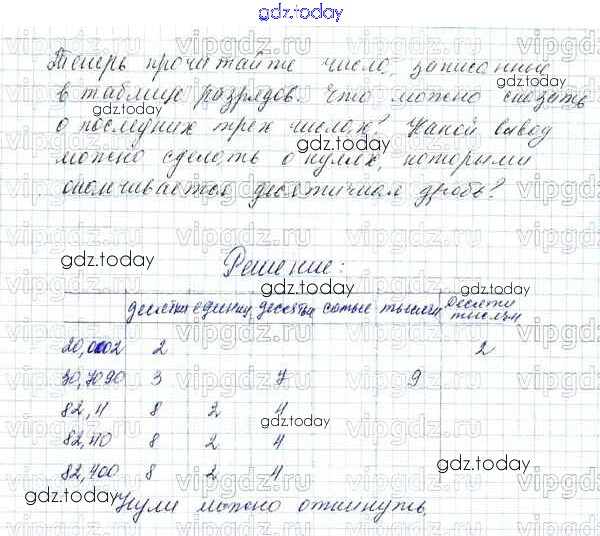 gdz.today
Теперь прочитайте число, записанные
в таблице разрядов. Что можно сказать
о последних трех числах? Какой вывод
можно сделать о нулях, которыми
оканчивается десятичная дробь?
Решение:
десятки единицы десятые сотые тысячн десяти тысячн
20,0002 2 2
30,7090 3 7 9
82,4 8 2 4
82,40 8 2 4
82,400 8 2 4
Нули можно откинуть.